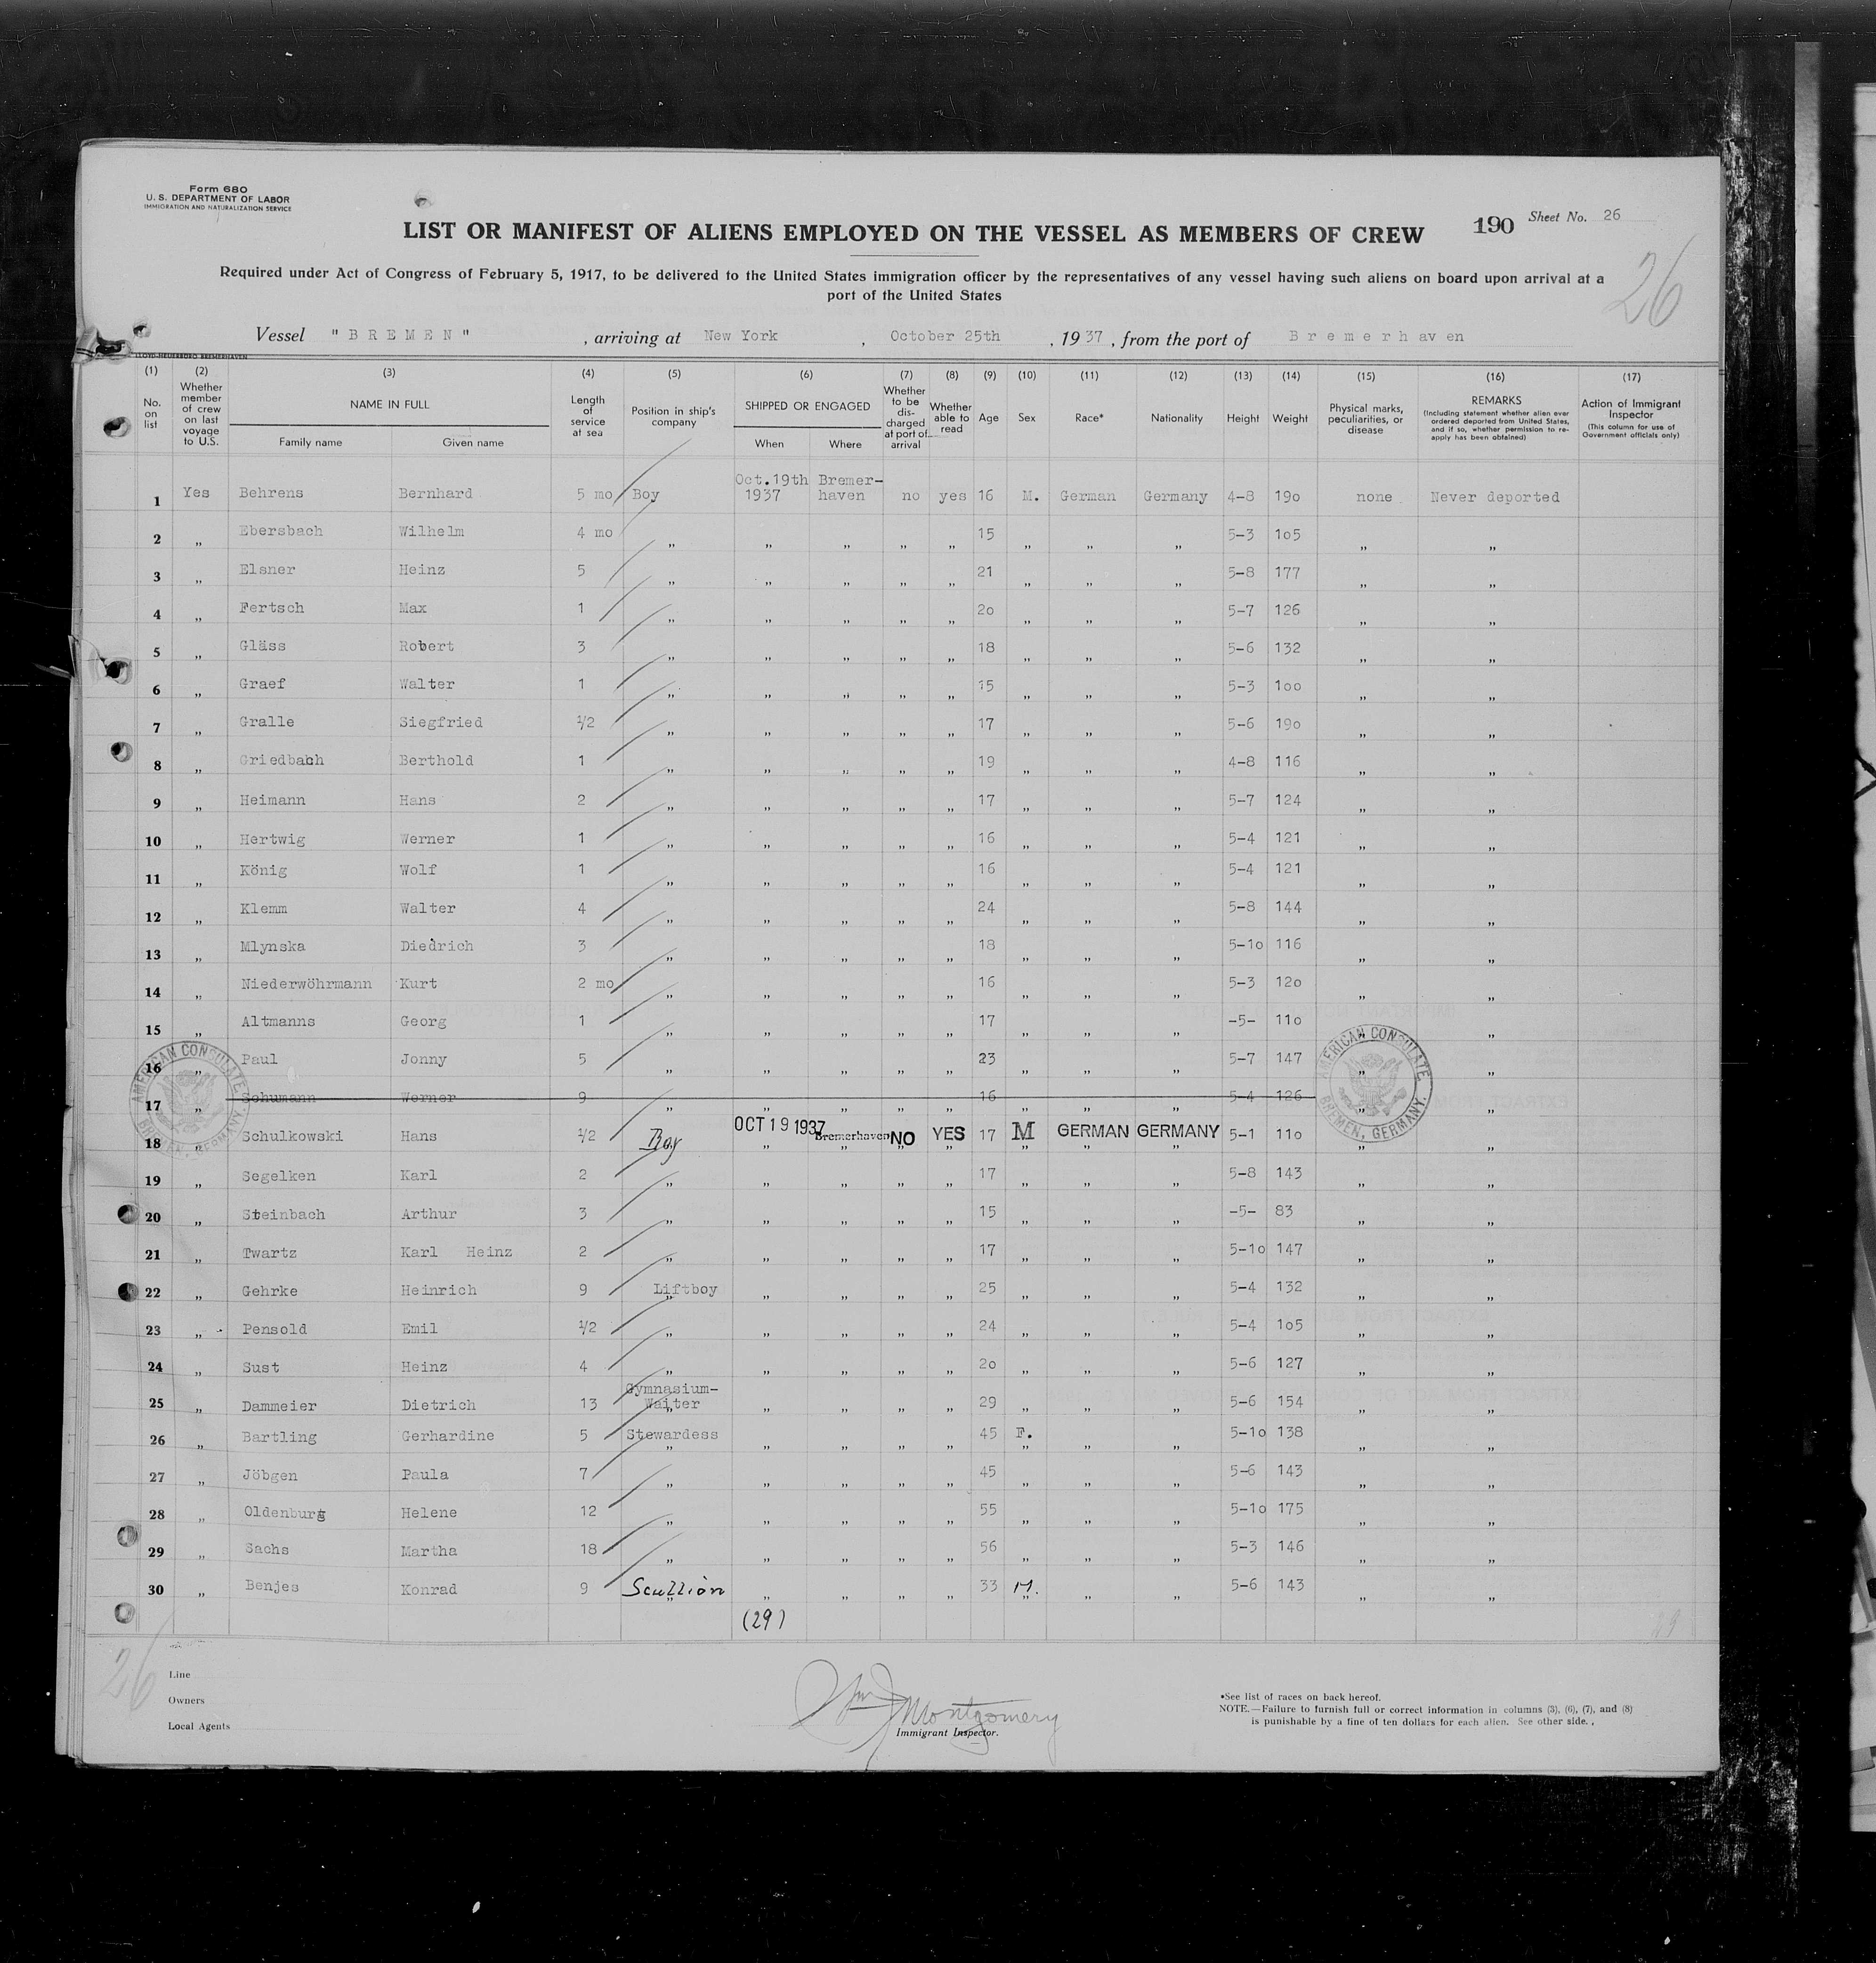 Form 680
U. S. DEPARTMENT OF LABOR
IMMIGRATION AND NATURALIZATION SERVICE
LIST OR MANIFEST OF ALIENS EMPLOYED ON THE VESSEL AS MEMBERS OF CREW
190 Sheet No. 26
26
Required under Act of Congress of February 5, 1917, to be delivered to the United States immigration officer by the representatives of any vessel having such aliens on board upon arrival at a
port of the United States
Vessel "BREMEN" , arriving at New York , October 25th , 1937 , from the port of Bremerhaven
(1) (2) (3) (4) (5) (6) (7) (8) (9) (10) (11) (12) (13) (14) (15) (16) (17)
No. on list
Whether member of crew on last voyage to U.S.
NAME IN FULL
Family name Given name
Length of service at sea
Position in ship's company
SHIPPED OR ENGAGED
When Where
Whether to be dis-charged at port of arrival
Whether able to read
Age
Sex
Race*
Nationality
Height
Weight
Physical marks, peculiarities, or disease
REMARKS
(Including statement whether alien ever ordered deported from United States, and if so, whether permission to re-apply has been obtained)
Action of Immigrant Inspector
(This column for use of Government officials only)
1 Yes Behrens Bernhard 5 mo Boy Oct.19th 1937 Bremer-haven no yes 16 M. German Germany 4-8 190 none Never deported
2 „ Ebersbach Wilhelm 4 mo „ „ „ „ „ 15 „ „ „ 5-3 105 „ „
3 „ Elsner Heinz 5 „ „ „ „ „ 21 „ „ „ 5-8 177 „ „
4 „ Fertsch Max 1 „ „ „ „ „ 20 „ „ „ 5-7 126 „ „
5 „ Gläss Robert 3 „ „ „ „ „ 18 „ „ „ 5-6 132 „ „
6 „ Graef Walter 1 „ „ „ „ „ 15 „ „ „ 5-3 100 „ „
7 „ Gralle Siegfried 1/2 „ „ „ „ „ 17 „ „ „ 5-6 190 „ „
8 „ Griedbach Berthold 1 „ „ „ „ „ 19 „ „ „ 4-8 116 „ „
9 „ Heimann Hans 2 „ „ „ „ „ 17 „ „ „ 5-7 124 „ „
10 „ Hertwig Werner 1 „ „ „ „ „ 16 „ „ „ 5-4 121 „ „
11 „ König Wolf 1 „ „ „ „ „ 16 „ „ „ 5-4 121 „ „
12 „ Klemm Walter 4 „ „ „ „ „ 24 „ „ „ 5-8 144 „ „
13 „ Mlynska Diedrich 3 „ „ „ „ „ 18 „ „ „ 5-10 116 „ „
14 „ Niederwöhrmann Kurt 2 mo „ „ „ „ „ 16 „ „ „ 5-3 120 „ „
15 „ Altmanns Georg 1 „ „ „ „ „ 17 „ „ „ -5- 110 „ „
16 „ Paul Jonny 5 „ „ „ „ „ 23 „ „ „ 5-7 147 „ „
17 „ Schumann Werner 9 „ „ „ „ „ 16 „ „ „ 5-4 126 „ „
18 „ Schulkowski Hans 1/2 Boy OCT 19 1937 Bremerhaven NO YES 17 M GERMAN GERMANY 5-1 110 „ „
19 „ Segelken Karl 2 „ „ „ „ „ 17 „ „ „ 5-8 143 „ „
20 „ Steinbach Arthur 3 „ „ „ „ „ 15 „ „ „ -5- 83 „ „
21 „ Twartz Karl Heinz 2 „ „ „ „ „ 17 „ „ „ 5-10 147 „ „
22 „ Gehrke Heinrich 9 Liftboy „ „ „ „ 25 „ „ „ 5-4 132 „ „
23 „ Pensold Emil 1/2 „ „ „ „ „ 24 „ „ „ 5-4 105 „ „
24 „ Sust Heinz 4 „ „ „ „ „ 20 „ „ „ 5-6 127 „ „
25 „ Dammeier Dietrich 13 Gymnasium-Waiter „ „ „ „ 29 „ „ „ 5-6 154 „ „
26 „ Bartling Gerhardine 5 Stewardess „ „ „ „ 45 F. „ „ 5-10 138 „ „
27 „ Jöbgen Paula 7 „ „ „ „ „ 45 „ „ „ 5-6 143 „ „
28 „ Oldenburg Helene 12 „ „ „ „ „ 55 „ „ „ 5-10 175 „ „
29 „ Sachs Martha 18 „ „ „ „ „ 56 „ „ „ 5-3 146 „ „
30 „ Benjes Konrad 9 Scullion „ „ „ „ 33 M. „ „ 5-6 143 „ „
(29)
AMERICAN CONSULATE BREMEN, GERMANY.
AMERICAN CONSULATE BREMEN, GERMANY.
26
Line
Owners
Local Agents
Wm J Montgomery
Immigrant Inspector.
*See list of races on back hereof.
NOTE.—Failure to furnish full or correct information in columns (3), (6), (7), and (8)
is punishable by a fine of ten dollars for each alien. See other side.